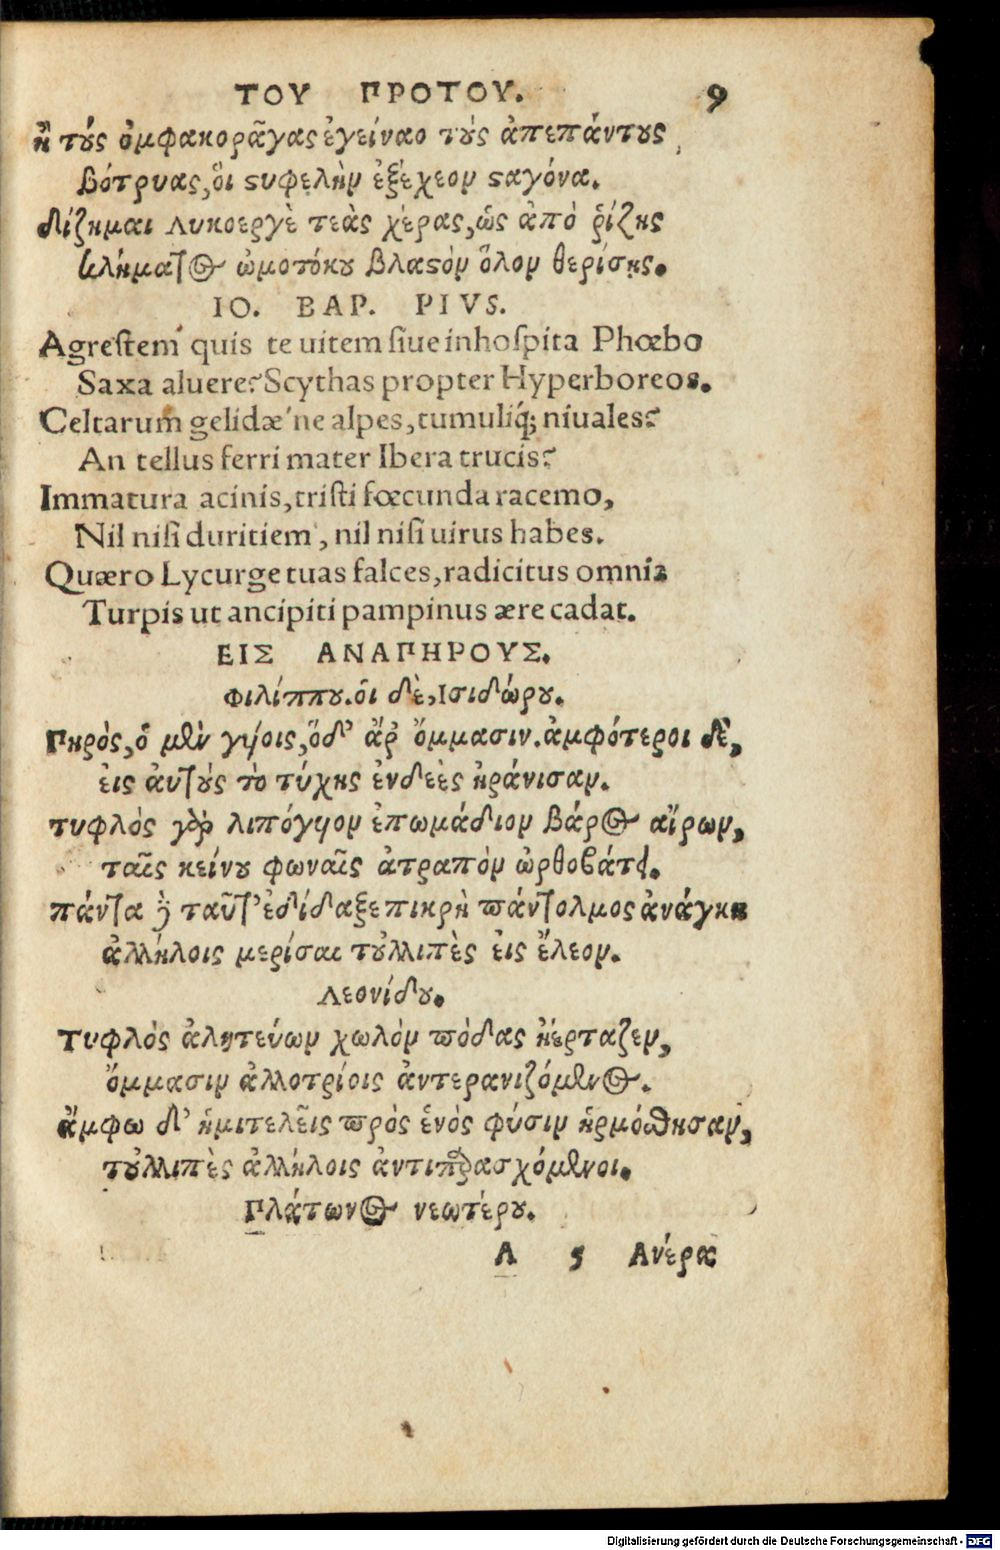 ΤΟΥ ΠΡΟΤΟΥ. 9
ἢ τοὺς ὀμφακορᾶγας ἐγείναο τοὺς ἀπεπάντους
βότρυας, οἳ στυφελὴν ἐξέχεον σταγόνα.
δίζημαι Λυκοεργὲ τεὰς χέρας, ὡς ἀπὸ ῥίζης
κλήματος ὠμοτόκου βλαστὸν ὅλον θερίσῃς.
IO. BAP. PIVS.
Agrestem quis te uitem siue inhospita Phœbo
Saxa aluere? Scythas propter Hyperboreos.
Celtarum gelidæ ne alpes, tumuliq́; niuales?
An tellus ferri mater Ibera trucis?
Immatura acinis, tristi fœcunda racemo,
Nil nisi duritiem, nil nisi uirus habes.
Quæro Lycurge tuas falces, radicitus omnis
Turpis ut ancipiti pampinus ære cadat.
ΕΙΣ ΑΝΑΠΗΡΟΥΣ.
Φιλίππου. οἱ δὲ, Ισιδώρου.
Πηρὸς, ὁ μὲν γυίοις, ὃ δ' ἄρ' ὄμμασιν. ἀμφότεροι δὲ,
εἰς αὑτοὺς τὸ τύχης ἐνδεὲς ἠράνισαν.
τυφλὸς γὰρ λιπόγυιον ἐπωμάδιον βάρος αἴρων,
ταῖς κείνου φωναῖς ἀτραπὸν ὠρθοβάτει.
πάντα δὲ ταῦτ' ἐδίδαξε πικρὴ πάντολμος ἀνάγκη
ἀλλήλοις μερίσαι τοὐλλιπὲς εἰς ἔλεον.
Λεονίδου.
Τυφλὸς ἀλητεύων χωλὸν πόδας ἠέρταζεν,
ὄμμασιν ἀλλοτρίοις ἀντερανιζόμενος.
ἄμφω δ' ἡμιτελεῖς πρὸς ἑνὸς φύσιν ἡρμόσθησαν,
τοὐλλιπὲς ἀλλήλοις ἀντιπαρασχόμενοι.
Πλάτωνος νεωτέρου.
A 5 Ανέρα
Digitalisierung gefördert durch die Deutsche Forschungsgemeinschaft - DFG